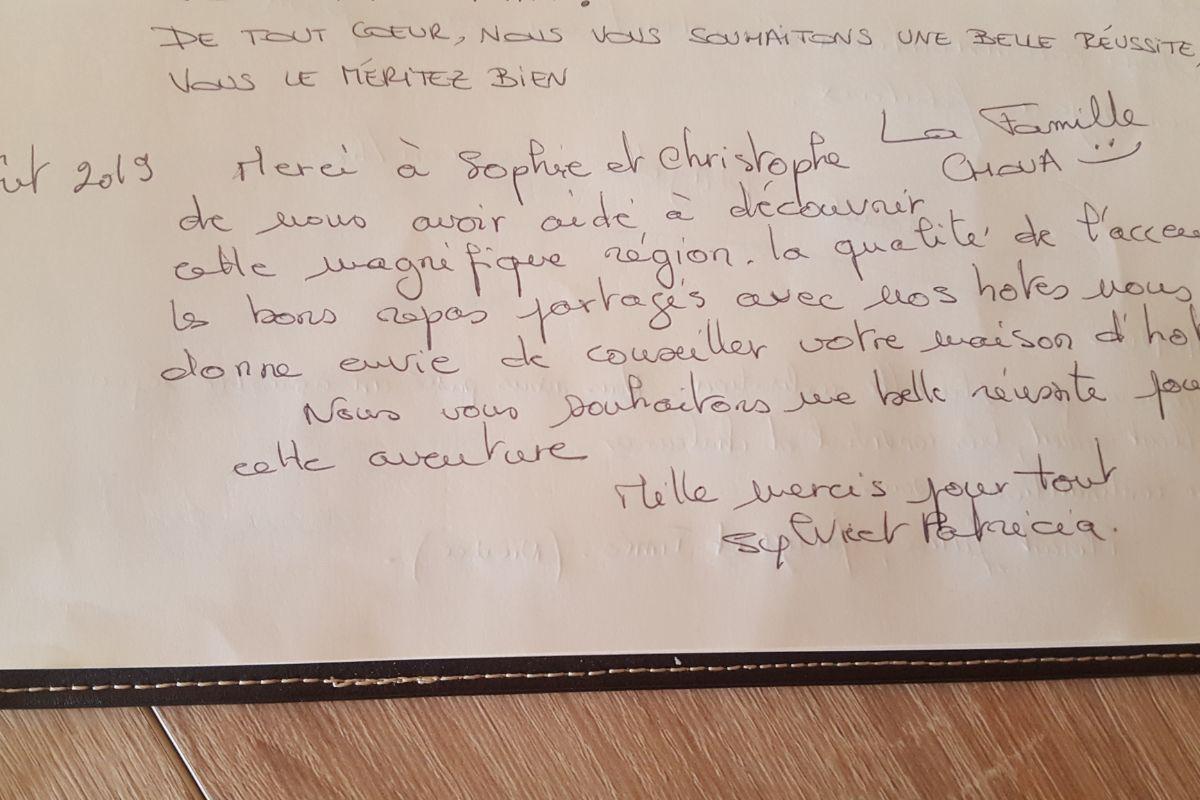 DE TOUT COEUR, NOUS VOUS SOUHAITONS UNE BELLE RÉUSSITE,
VOUS LE MÉRITEZ BIEN
La Famille
CHOUA
2019 Merci à Sophie et Christophe
de nous avoir aidé à découvrir
cette magnifique région. la qualité de l'accee
les bons repas partagés avec nos hotes nous
donne envie de conseiller votre maison d'hot
Nous vous souhaitons une belle réussite pou
cette aventure
Mille mercis pour tout
Sylvie et Patricia.